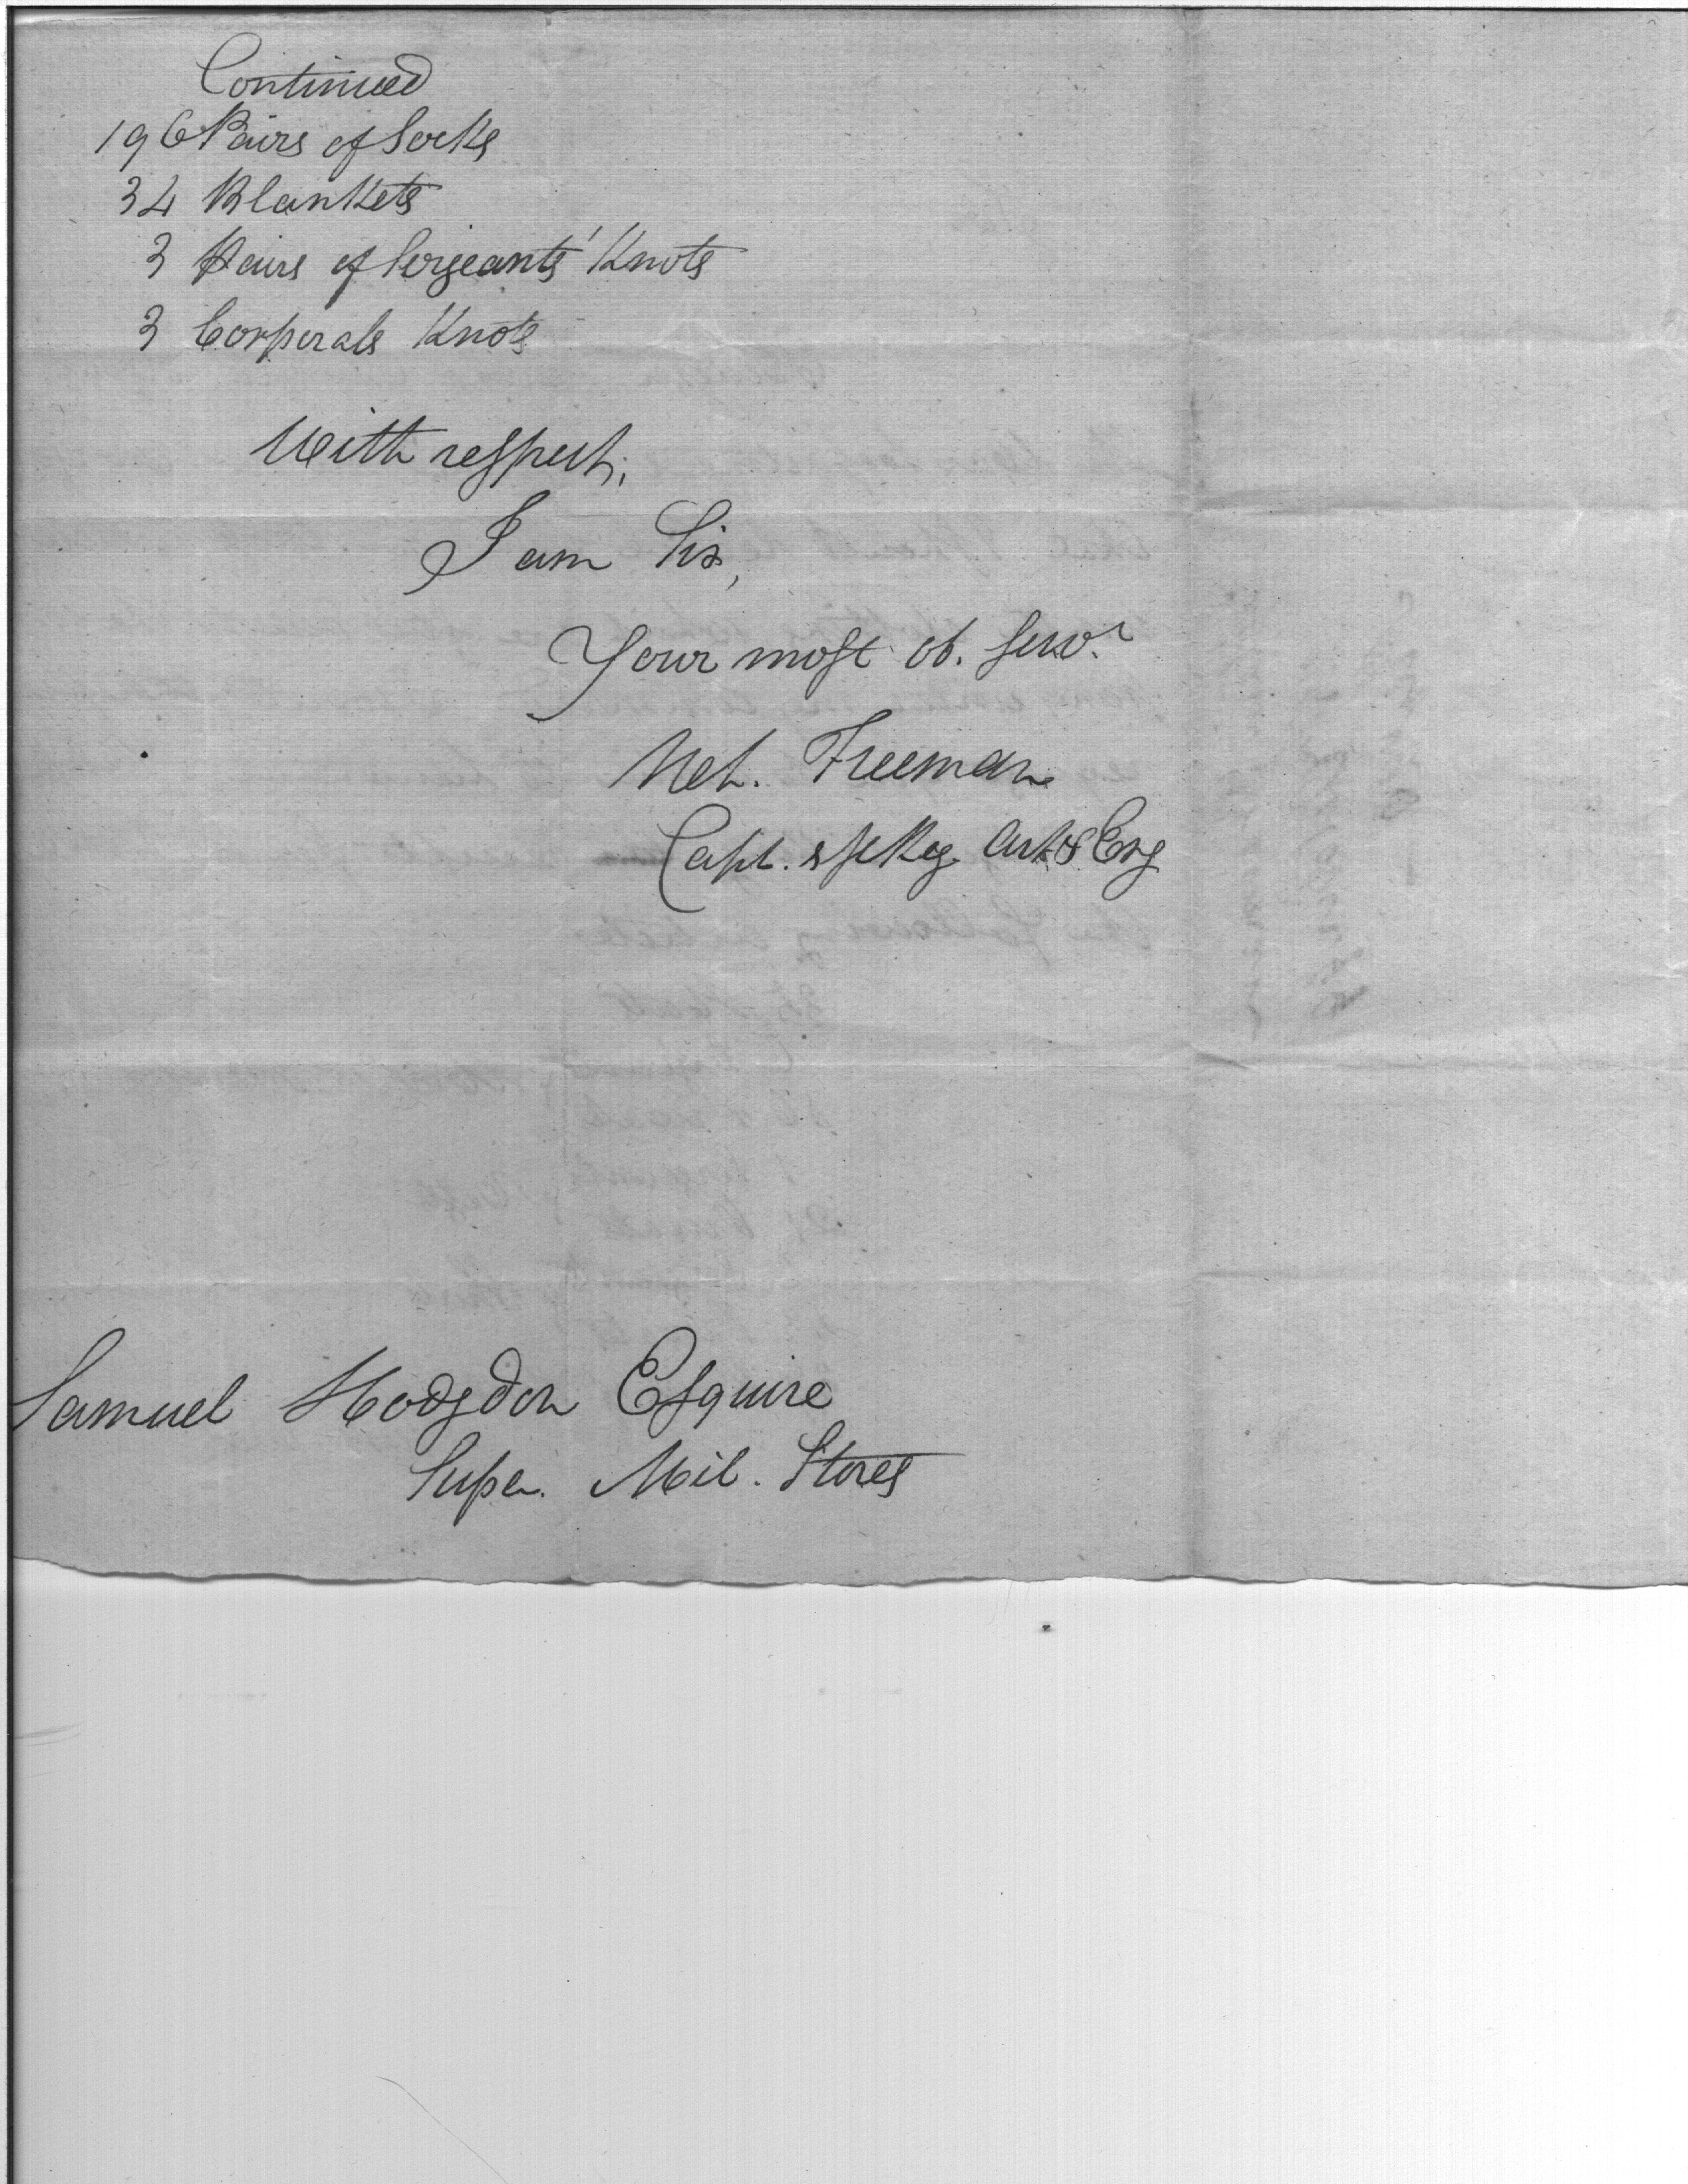 Continued
196 Pairs of Socks
34 Blankets
3 Pairs of Sergeants' Knots
3 Corporals Knots
With respect,
I am Sir,
Your most ob. serv.
Neh. Freeman
Capt. 1st Reg. Art & Eng
Samuel Hodgdon Esquire
Super. Mil. Stores